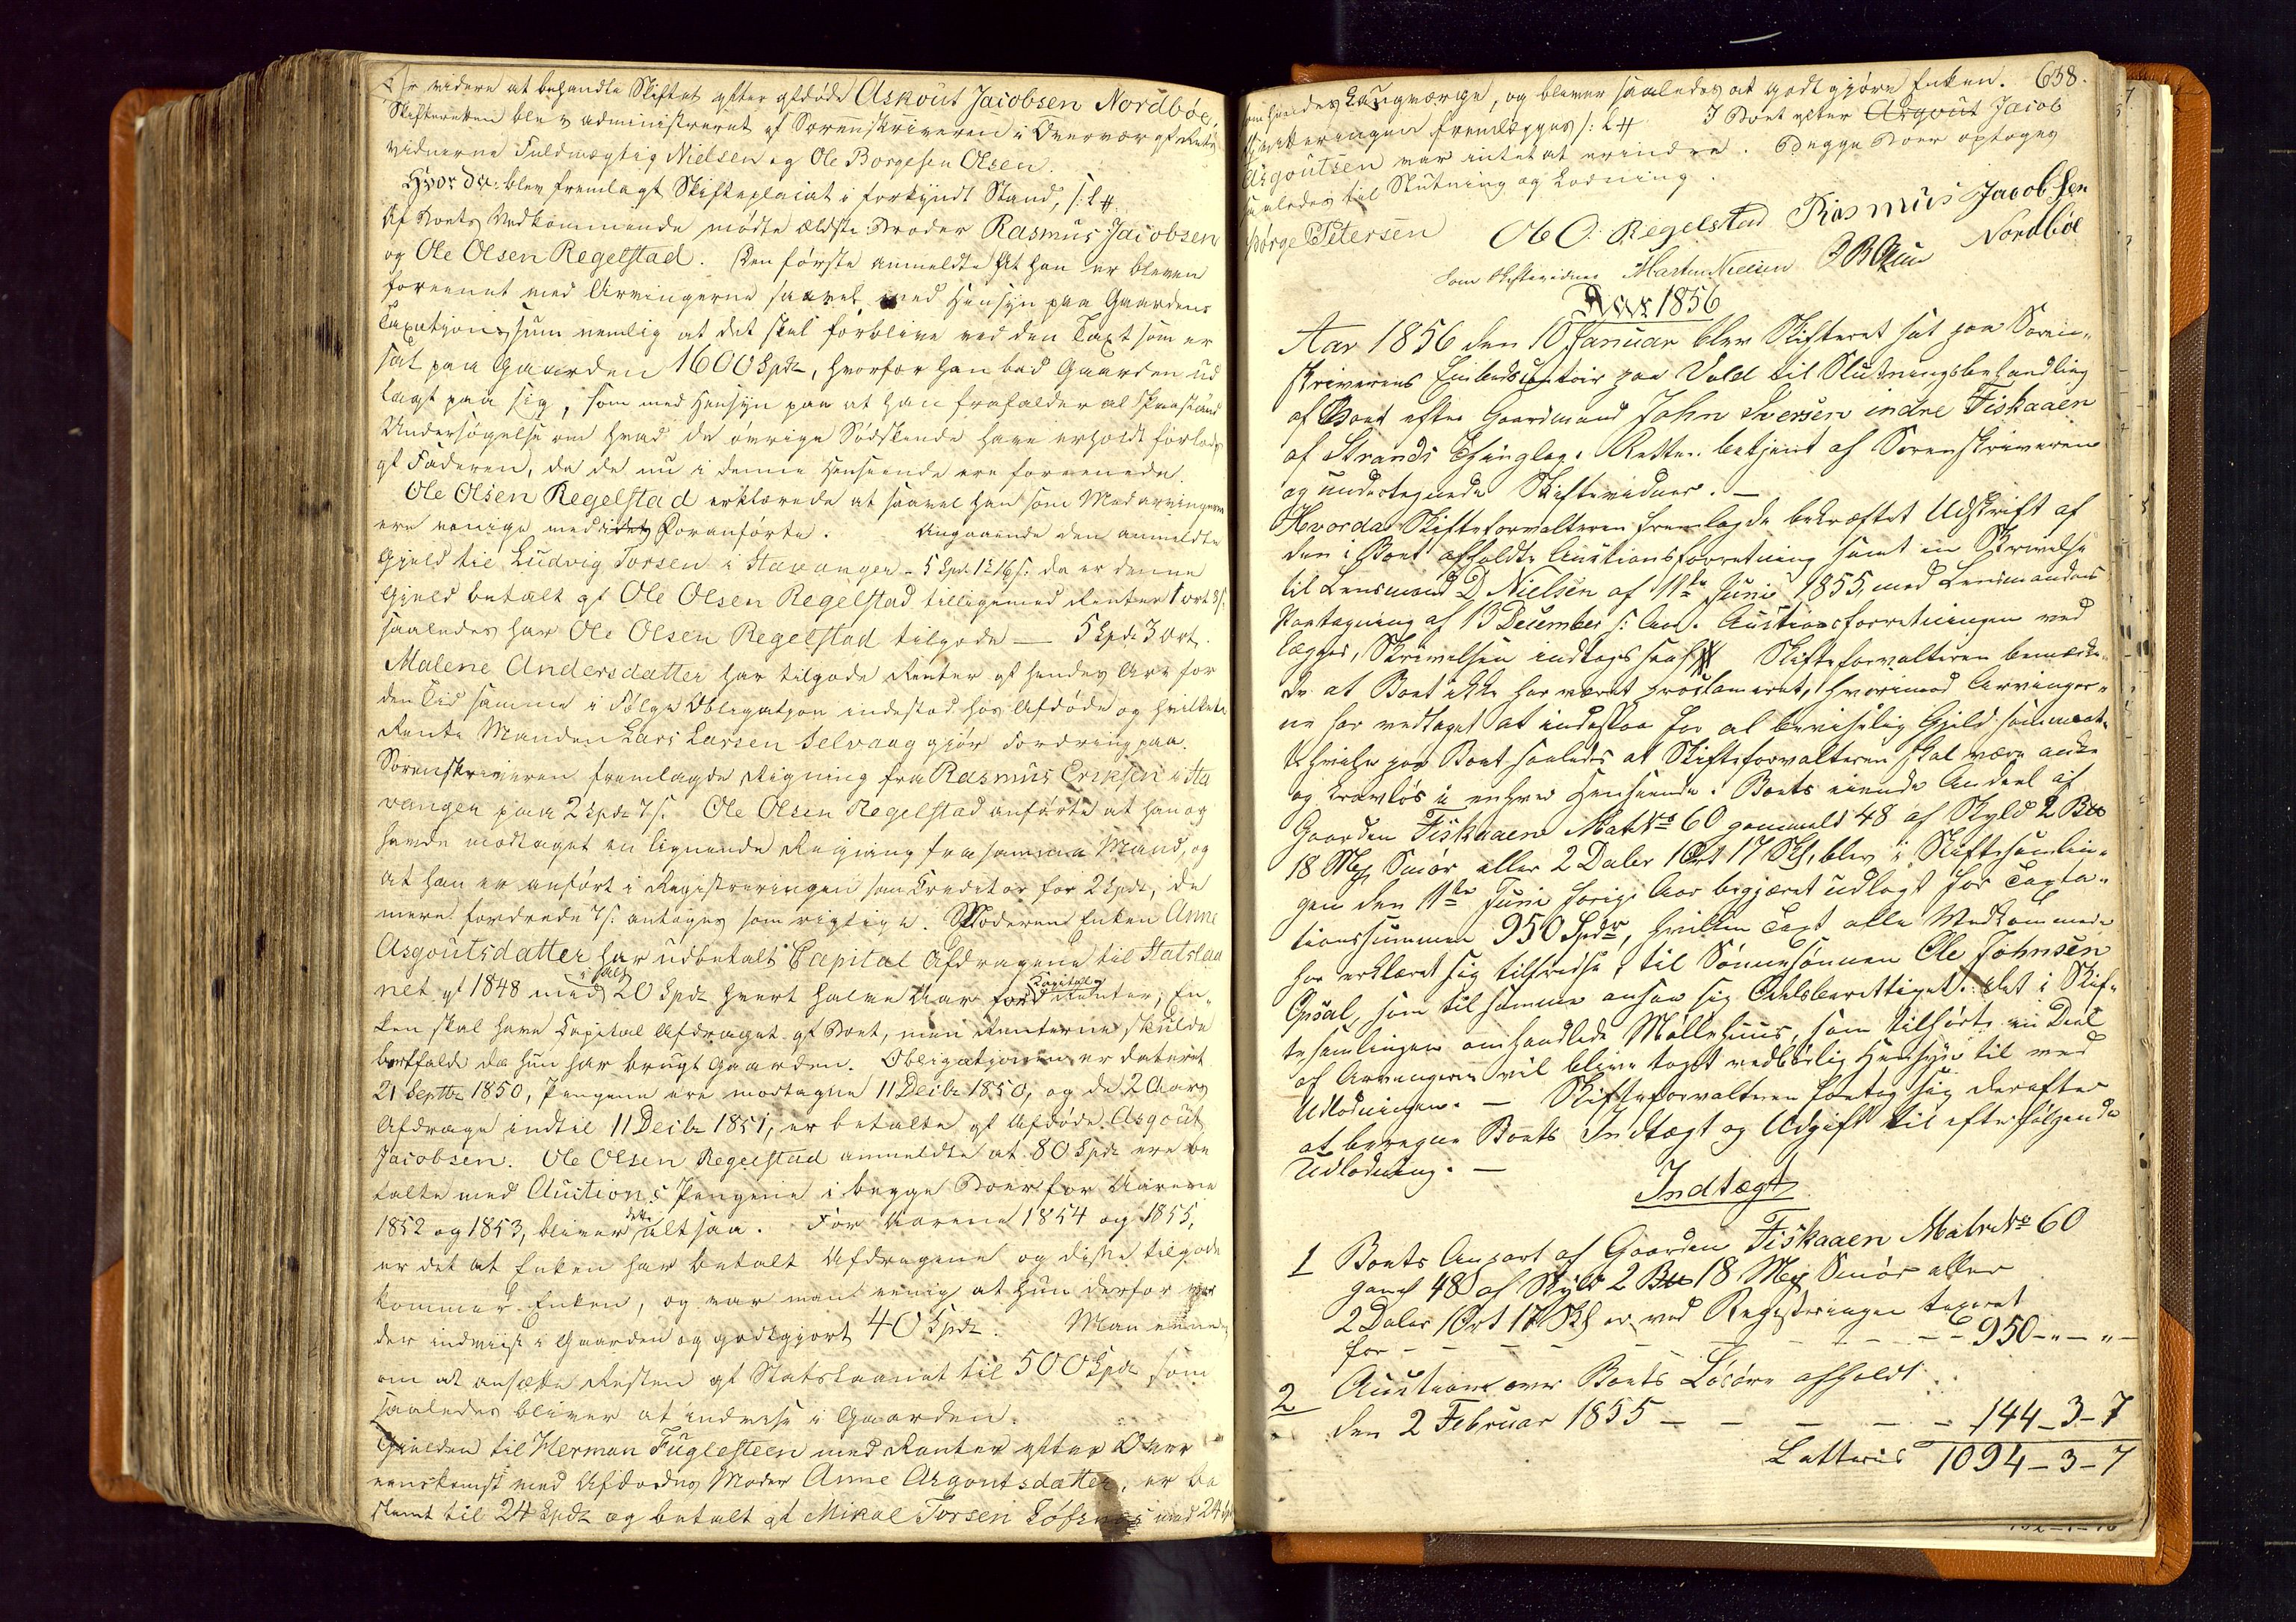 videre at behandle Skiftet efter afdøde Askout Jacobsen Nordbøe,
Skifteretten blev administreret af Sorenskriveren i Overvær af Rets
vidnerne Fuldmægtig Nielsen og Ole Borgesen Olsen.
Hvorda: blev fremlagt Skifteplacat i forkyndt Stand,
Af Boets Vedkommende mødte ældste Broder Rasmus Jacobsen
og Ole Olsen Regelstad. Den første anmeldte At han er bleven
foreenet med Arvingerne saavel med Hensyn paa Gaardens
Taxationssum nemlig at det skal forblive ved den Taxt som er
sat paa Gaarden 1600 Spdr, hvorfor han bad Gaarden ud
lagt paa sig, som med Hensyn paa at han frafalder al
Undersøgelse om hvad de øvrige Sødskende have erholdt forlods
af Faderen, da de nu i denne Henseende ere foreenede.
Ole Olsen Regelstad erklærede at saavel han som Medarvingerne
ere eenige med det Foranførte. Angaaende den anmeldte
Gjeld til Ludvig Torsen i Stavanger - 5 Spd. 1 16 s. da er denne
Gjeld betalt af Ole Olsen Regelstad tilligemed Renter 1 ort 8 s.
saaledes har Ole Olsen Regelstad tilgode — 5 Spdr 3 ort.
Malene Andersdatter har tilgode Renter af hendes Arv for
den Tid samme i Følge Obligation indestod hos Afdøde og hvilken
Rente Manden Lars Larsen Selvaag gjør Fordring paa.
Sorenskriveren fremlagde Regning fra Rasmus Eriksen i Sta
vanger paa 2 Spdr 7 s. Ole Olsen Regelstad anførte at han og
havde modtaget en lignende Regning fra samme Mand, og
at han er anført i Registreringen som Creditor for 2 Spdr, de
mere fordrede 7 s. antages som rigtige. Moderen Enken Anne
Asgoutsdatter har udbetalt Capital Afdragene til Statslaa
net af 1848 med i salt 20 Spdr hvert halve Aar for Kapital Renter, En-
ken skal have Capital Afdraget af Boet, men Renterne skulde
bortfalde da hun har brugt Gaarden. Obligationen er dateret
21 Septbr 1850, Pengene ere modtagne 11 Decbr 1850, og de 2 Aars
Afdrage indtil 11 Decbr 1851, er betalte af Afdøde Asgout
Jacobsen. Ole Olsen Regelstad anmeldte at 80 Spdr ere be
talte med Auctions Pengene i begge Boer for Aarene
1852 og 1853, bliver dette altsaa. For Aarene 1854 og 1855,
er det at Enken har betalt Afdragene og disse tilgode
kommer Enken, og var man eenig at hun derfor
der indviist i Gaarden og godtgjort 40 Spdr. Man eenedes
om at ansætte Resten af Statslaanet til 500 Spdr som
saaledes bliver at indvise i Gaarden.
Gjelden til Herman Fuglesteen med Renter efter Over
eenskomst med Afdødes Moder Anne Asgoutsdatter, er be
stemt til 24 Spdr og betalt af Mikal Torsen med 24
638.
som hendes Laugværge, og bliver saaledes at godtgjøre Enken.
fremlægges I Boet efter Asgout Jacob
Asgoutsen var intet at erindre. Begge Boer optages
saaledes til Slutning og Lodning.
Børge Petersen Ole O. Regelstad Rasmus Jacobsen
Nordbøe
Som Skiftevidner Martin Nielsen
Aar 1856
Aar 1856 den 10 Januar blev Skifteret sat paa Soren-
skriverens Embedscontoir paa Vold til Slutningsbehandling
af Boet efter Gaardmand John Iversen indre Fiskaaen
af Strands Thinglag. Retten betjent af Sorenskriveren
og undertegnede Skiftevidner. —
Hvorda Skifteforvalteren fremlagde bekræftet Udskrift af
den i Boet afholdte Auctionsforretning samt en Skrivelse
til Lensmand D Nielsen af 11te Juni 1855, med Lensmandens
Paategning af 13 December s: Aar. Auctionsforretningen ved
lægges, Skrivelsen indtages saal. Skifteforvalteren bemærke-
de at Boet ikke har været proclameret, hvorimod Arvinger-
ne har vedtaget at indestaa for al beviislig Gjeld som maat-
te hvile paa Boet saaledes at Skifteforvalteren skal være anke
og kravløs i enhver Henseende. Boets eiende Andeel af
Gaarden Fiskaaen Matr No 60 gammelt 48 af Skyld 2 B
18 Mrk Smør eller 2 Daler 1 Ort 17 Sk, blev i Skiftesamlin-
gen den 11te Juni forrige Aar begjæret udlagt for Taxta-
tionssummen 950 Spdr, hvilken Taxt alle Vedkommende
har erklæret sig tilfredse, til Sønnesønnen Ole Johnsen
Opsal, som til samme ansaa sig Odelsberettiget. Det i Skif-
tesamlingen omhandlede Møllehuus, som tilhørte en Deel
af Arvingerne vil blive taget vedbørlig Hensyn til ved
Udlodningen. — Skifteforvalteren foretog sig derefter
at beregne Boets Indtægt og Udgift til efterfølgende
Udlodning. —
Indtægt
1 Boets Anpart af Gaarden Fiskaaen Matr No 60
gaml 48 af Skyld 2 B 18 Mrk Smør eller
2 Daler 1 Ort 17 Sk er ved Registeringen taxeret
for - - - - - - - 950-"-"-
2 Auctionen over Boets Løsøre afholdt
den 2 Februar 1855 — — — — — 144-3-7
Latteris 1094-3-7